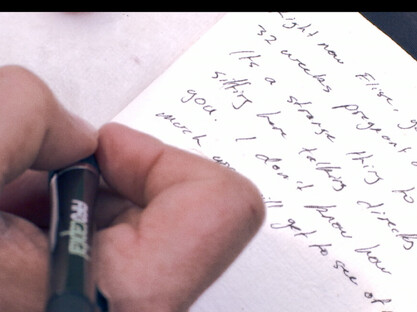 Right now Elise,
32 weeks pregnant
It's a strange thing to
sitting here talking directly
you. I don't know how
much you'll get to see of